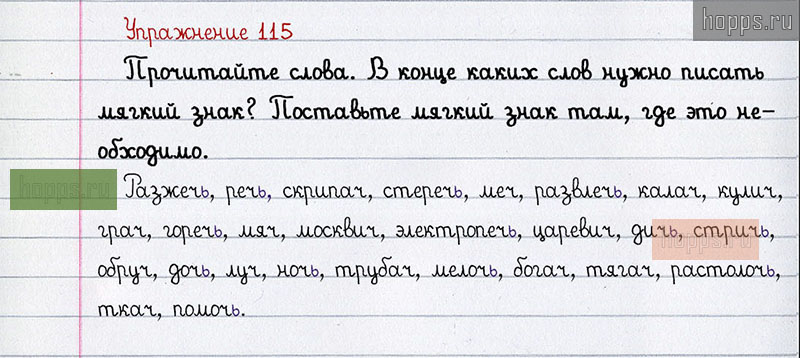 hopps.ru
Упражнение 115
Прочитайте слова. В конце каких слов нужно писать
мягкий знак? Поставьте мягкий знак там, где это не-
обходимо.
hopps.ru
Разжечь, речь, скрипач, стеречь, меч, развлечь, калач, кулич,
грач, горечь, мяч, москвич, электропечь, царевич, дичь, стричь,
hopps.ru
обруч, дочь, луч, ночь, трубач, мелочь, богач, тягач, растолочь,
ткач, помочь.